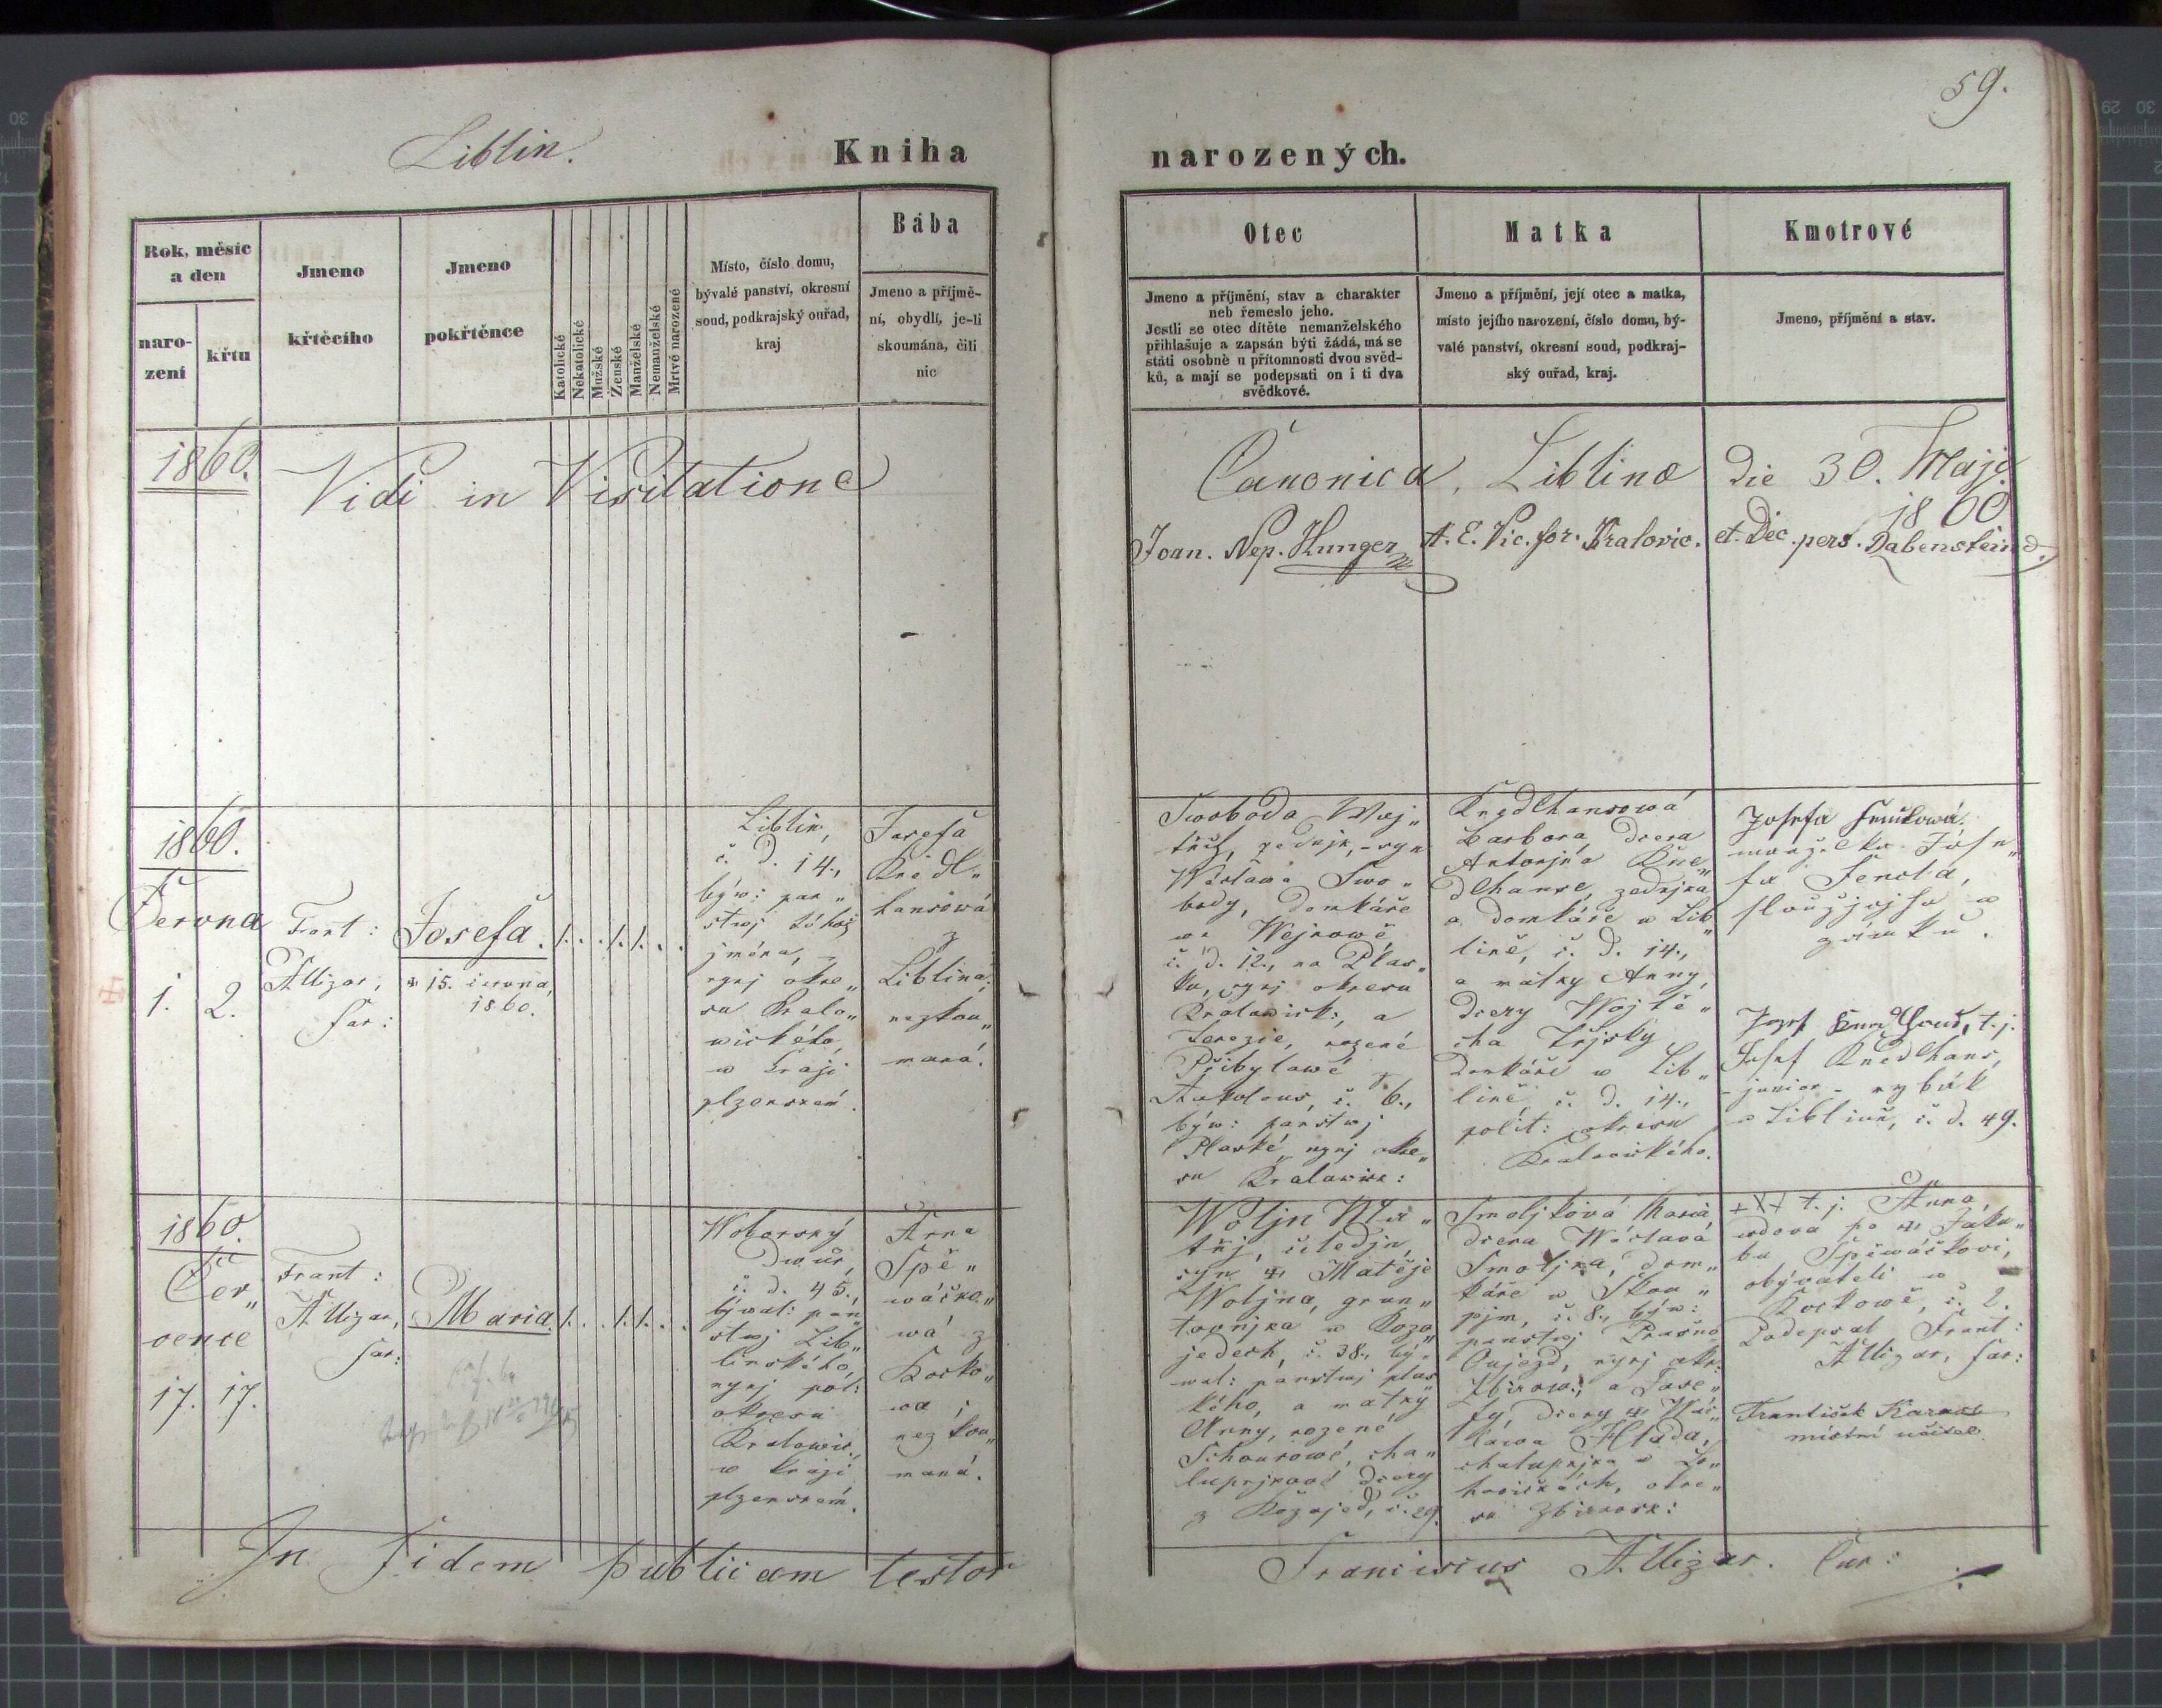 59.
Liblin.
Kniha
narozených.
Rok, měsíc
a den
naro-
zení
křtu
Jmeno
křtěcího
Jmeno
pokřtěnce
Katolické
Nekatolické
Mužské
Ženské
Manželské
Nemanželské
Mrtvé narozené
Místo, číslo domu,
bývalé panství, okresní
soud, podkrajský ouřad,
kraj
Bába
Jmeno a příjmě-
ní, obydlí, je-li
skoumána, čili
nic
Otec
Jmeno a příjmění, stav a charakter
neb řemeslo jeho.
Jestli se otec dítěte nemanželského
přihlašuje a zapsán býti žádá, má se
státi osobně u přítomnosti dvou svěd-
ků, a mají se podepsati on i ti dva
svědkové.
Matka
Jmeno a příjmění, její otec a matka,
místo jejího narození, číslo domu, bý-
valé panství, okresní soud, podkraj-
ský ouřad, kraj.
Kmotrové
Jmeno, příjmění a stav.
1860.
Vidi in Visitatione
Canonica, Liblinae die 30. Maji
1860
Joan. Nep. Hunger A. E. Vic. for. Kralovic. et Dec. pers.
1860.
Června
1. 2.
Frant:
A Uizar,
far:
Josefa.
✠ 15. června,
1860.
1. . . 1. 1. . .
Liblin,
č. d. 14.,
býw: pan„
stwj tóhož
jména,
nynj okre„
su Kralo„
wického,
w kraji
plzenském.
Josefa
Knedl„
hansowá
z
Liblína;
nezkou„
maná.
Swoboda Woj„
těch, zednjk, syn
Wáclawa Swo„
body, domkáře
we Wejrowě,
č. d. 12., na Plas„
ku, nynj okresu
Kralowick:, a
Terezie, rozené
Přibylowé
č. 6.,
býw: panstwj
Plaské, nynj okre„
su Kralowick:
Knedlhansowá
Barbora, dcera
Antonjna Kne„
dlhanse, zednjka
a domkáře w Lib„
lině, č. d. 14.,
a matky Anny,
dcery Wojtě„
cha
domkáře w Lib„
lině č. d. 14.,
polit: okresu
Kralowického.
Josefa
manželka Jose„
fa Fencla,
sloužjcjho w
zámku.
Josef Knedlhans, t. j.
Josef Knedlhans,
junior - rybák
w Liblině, č. d. 49.
1860.
Čer„
vence
17. 17.
Frant:
A Uizar,
far:
Maria.
1. . . 1. 1. . .
Woborský
Dwůr,
č. d. 45.,
býwal: pan„
stwj Lib„
linského,
nynj pol:
okresu
Kralowic.,
w kraji
plzenském.
Anna
Spě„
wáčko„
wá z
Kocko„
wa;
nezkou„
maná.
Woljn Ma„
těj, čeledjn,
syn ✠ Matěje
Woljna, grun„
townjka w Kozo„
jedech, č. 38., bý„
wal: panstwj plas„
kého, a matky
Anny, rozené
Schourowé, cha„
lupnjkowé dcery
z Kožojed, č. 29.
Smoljková Maria,
dcera Wáclawa
Smoljka, dom„
káře w Skou„
č. 8., býw:
panstwj
Oujezd, nynj okr:
Zbirow.; a Jose„
fy, dcery ✠ Wác„
lawa Hlada,
chalupnjka w
okre„
su Zbirowsk:
+++ t. j. Anna,
wdova po ✠ Jaku„
bu Spěwáčkowi,
obývateli w
Kockowě, č. 2.
Podepsal Frant:
A Uizar, far:
František
místní učitel.
In Fidem publicam testor
Franciscus A. Uizar. Cur: